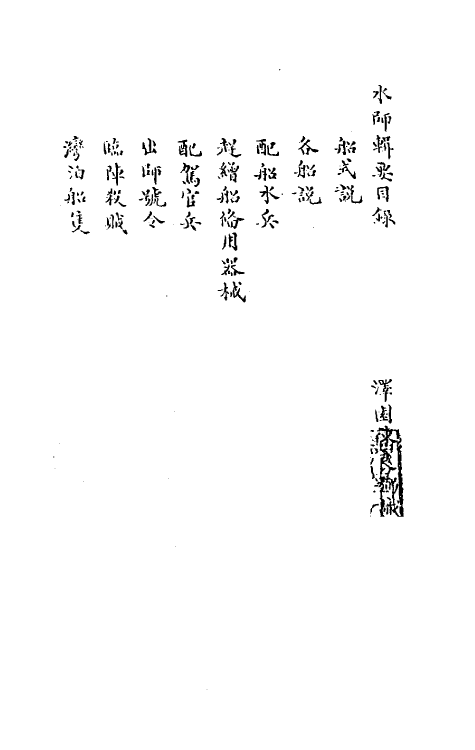 水師輯要目錄
澤園
船式說
各船說
配船水兵
趕繒船俻用器械
配駕官兵
出師號令
臨陣殺賊
灣泊船隻